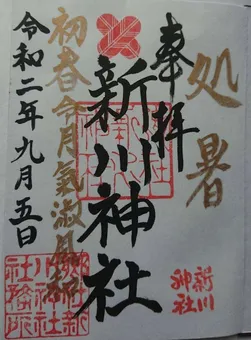 処暑
奉拝
新川神社
新川
神社
初春令月氣淑風和
令和二年九月五日
郷社新
川神社
社務所